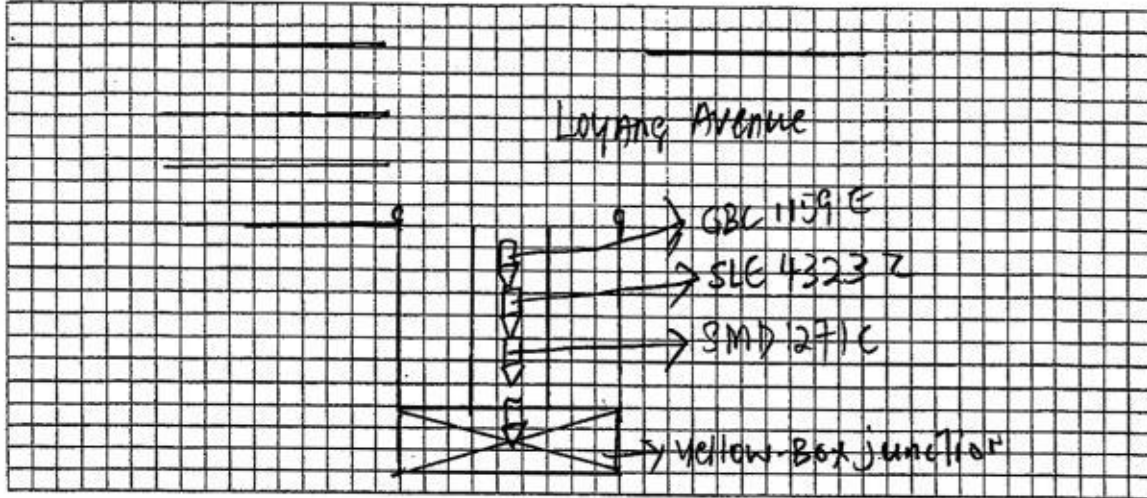 Loyang Avenue
GBC 1159 E
SLE 4323 Z
SMD 1271 C
Yellow-Box junction